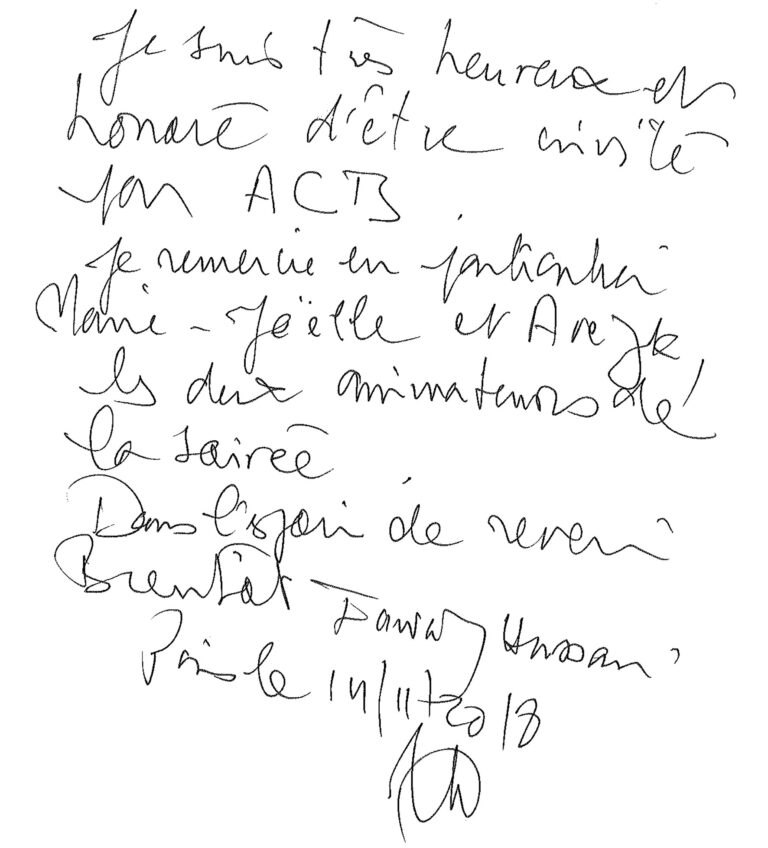 Je suis très heureux et
honoré d'être invité
par ACTB.
Je remercie en particulier
Marie-Joëlle et Arezki
les deux animateurs de
la soirée
Dans l'espoir de revenir
Bientôt
Paris le 14/11/2018